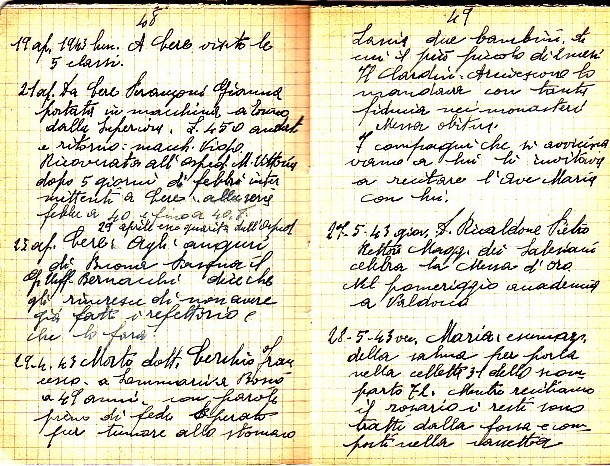 48
19 ap. 1943 lun. A Cere visito le
5 classi.
21 ap. Da Cere Gianna
portata in macchina a Torino
dalla Superiora. L. 450 andat
e ritorno: macch. Viopo.
Ricoverata all'osped. M. Vittoria
dopo 5 giorni di febbri inter
mittenti a Cere: alla sera
febbre a 40 e fino a 40.7.
29 aprile era guarita dall'osped
23 ap. Cere: Agli auguri
di Buona Pasqua il
Bernacchi dice che
gli rincresce di non avere
già fatto i refettorio e
che lo farà.
29. 4. 43 Morto dott. Cerchio Fran
cesco a Sommariva Bosco
a 49 anni, con parole
piene di fede. Operato
per tumore allo stomaco
49
Lascia due bambini, di
cui il più piccolo di mesi
Il Clardin.
mandava con tanta
fiducia nei monasteri
Messa obitus.
I compagni che si avvicina
vano a lui li invitava
a recitare l'Ave Maria
con lui.
27-5-43 giov. D. Ricaldone Pietro
Rettore Magg. dei Salesiani
celebra la Messa d'oro.
Nel pomeriggio accademia
a Valdocco
28-5-43 ven. Maria: esumaz.
della salma per porla
nella celletta 31 dello scom
parto 72. Mentre recitiamo
il rosario i resti sono
tratti dalla fossa e com
posti nella cassetta